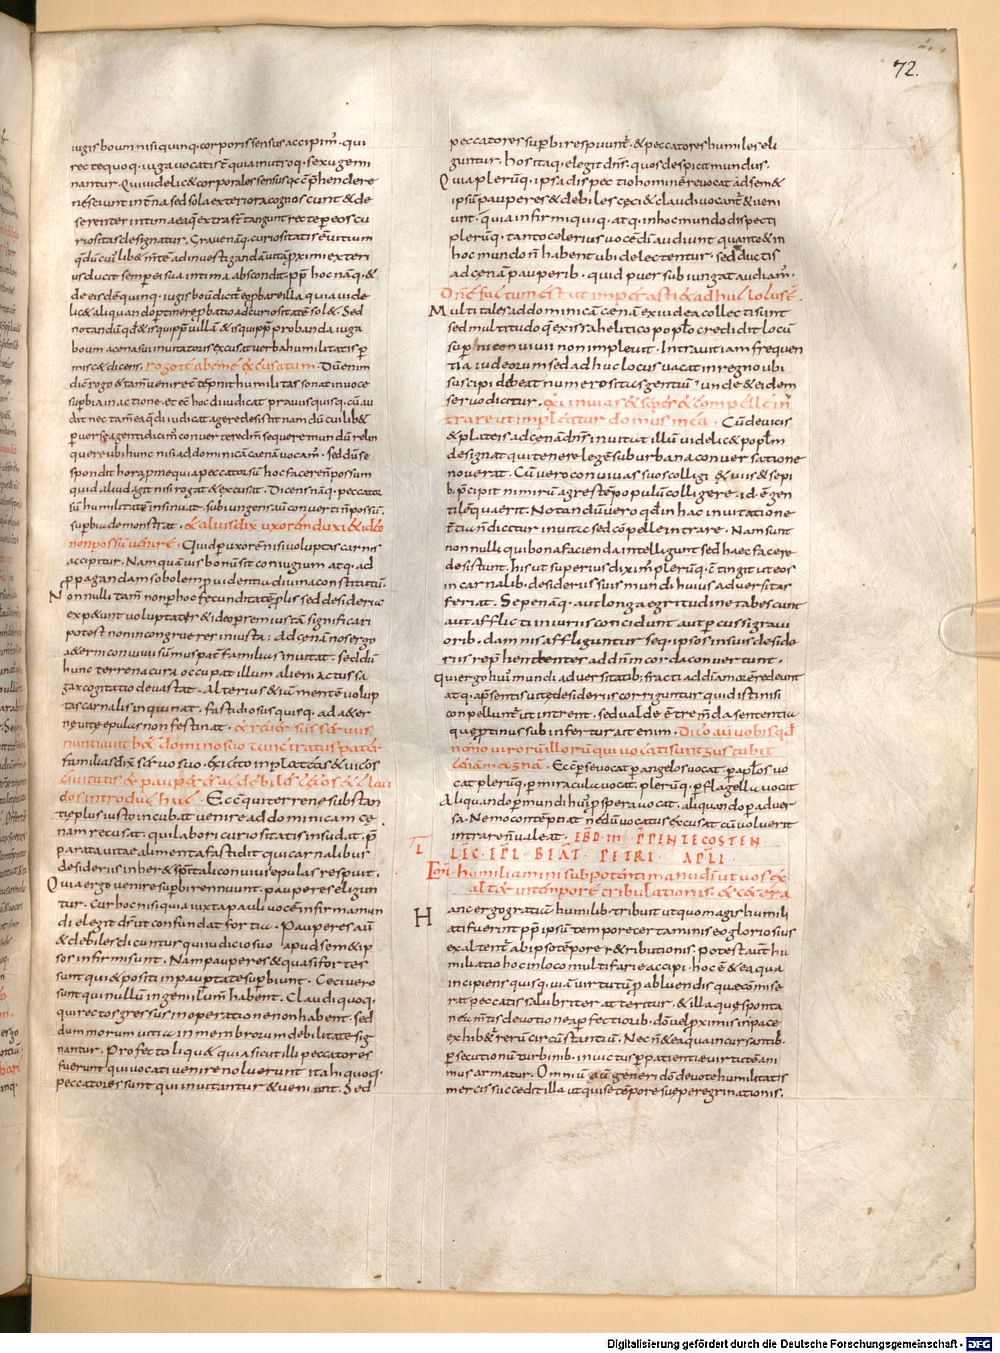 72.
iugis boum nisi quinq. corporis sensus accipim̄. qui
recte quoq. iuga vocati st̄ quia in utroq. sexu gemi
nantur. Qui videlic& corporales sensus qc̄ p̄hendere
nesciunt int̄na sed sola exteriora cognoscunt & de
riositas designatur. Gravenāq. curiositatis ē vitium
lic& aliquando ptinere pbatio ad curiositatē sol&. Sed
boum a cenā sui invitatoris excusat verba humilitatis p
misc& dicens. rogo te habe me excusatum. Dū enim
dic̄ rogo & tam̄ venire contēpnit humilitas sonat in voce
superbia in actione. et ecc̄ hoc diiudicat pravus quisq. cū au
dit nec tam̄ ea q̄ diiudicat agere desistit nam dū cuilib&
pverse agenti dicim̄ convertere dm̄ sequere mundū relin
quere ubi hunc nisi ad dominicā caenam vocam̄. sed dū re
spondit hora p me quia peccator sū hoc facere n̄ possum
quid aliud agit nisi rogat & excusat. Dicens nāq. peccator
sū humilitatē insinuat. subiungens aū converti n̄ possū.
supbiā demonstrat. & alius dix̄ uxorē duxi & ideo
non possū venire. Quid p uxorē nisi voluptas carnis
accipitur. Nam quāvis bonū sit coniugium atq. ad
ppagandam sobolem pvidentia divina constitutū.
Nonnulli tam̄ non p hoc fecunditatē plis sed desideria
expetunt voluptatū & ideo p rem iustā significari
potest non incongrue res iniusta. ad cenā nos ergo
aeterni convivii sum̄us paterfamilias invitat. sed dū
hunc terrena cura occupat illum alieni actus sa
gax cogitatio devastat. Alterius etiā mentē volup
tas carnalis inquinat. fastidiosus quisq. ad aeter
nę vitę epulas non festinat. & reversus servus
nuntiavit hęc domino suo tunc iratus pater
familias dix̄ servo suo. exi cito in plateas & vicos
civitatis & pauperes ac debiles cecos & clau
dos introduc huc. Ecce qui terrenę substan
tiē plus iusto incubat venire ad dominicam ce
nam recusat. qui labori curiositatis insudat. p̄
parata vitae alimenta fastidit qui carnalibus
desideriis inheret spiritalis convivii epulas respuit.
Quia ergo venire supbi rennuunt. pauperes eligun
tur. Cur hoc nisi quia iuxta pauli vocē infirma mun
di elegit dn̄s ut confundat fortia. Pauperes aū
& debiles dicuntur qui iudicio suo apud sem&ip
sos infirmi sunt. Nam pauperes & quasi fortes
sunt qui & positi in paupertate superbiunt. Ceci vero
sunt qui nullum ingenii lum̄ habent. Claudi quoq.
qui rectos gressus in operatione non habent. sed
dum morum vitia in membrorum debilitate sig
nantur. Profecto liqu& quia sicut illi peccatores
fuerunt qui vocati venire noluerunt ita hi quoq.
peccatores sunt qui invitantur & veniunt. Sed
peccatores supbi respuunt̄. & peccatores humiles eli
guntur. hos itaq. elegit dn̄s quos despicit mundus.
Quia plerūq. ipsa dispectio hominē revocat ad sem&
ipsū pauperes & debiles cęci & claudi vocant̄ & veni
unt. quia infirmi quiq. atq. in hoc mundo dispecti
plerūq. tanto celerius vocē dī audiunt quanto & in
hoc mundo n̄ habent ubi delectentur. sed ductis
ad cenam pauperib. quid puer subiungat audiam̄.
Dn̄e factum est ut imperasti & adhuc locus ē.
Multi tales ad dominicā cenā ex iudea collecti sunt
sed multitudo quę ex israhelitico poplo credidit locū
superni convivii non implevit. Intravit iam frequen
tia iudeorum sed adhuc locus vacat in regno ubi
suscipi debeat numerositas gentiū unde & eidem
servo dicitur. Exi in vias & sepes & compelle in
trare ut impleatur domus mea. Cū de vicis
& plateis ad cenā dn̄s invitat illū videlic& poplm̄
designat qui tenere legē sub urbana conversatione
noverat. Cū vero convivas suos colligi & viis & sepi
b. p̄cipit nimirū agrestē populū colligere. id. ē gen
tilē quaerit. Notandū vero qd̄ in hac invitatione
tertia n̄ dicitur invita sed cōpelle intrare. Nam sunt
nonnulli qui bona facienda intelligunt sed haec facere
desistunt. his ut superius dixim̄ plerūq. cōtingit ut eos
in carnalib. desideriis suis mundi huius adversitas
feriat. Sepe nāq. aut longa egritudine tabescunt
aut afflicti iniuriis concidunt aut percussi gravi
orib. damnis affliguntur seq. ipsos in suis deside
riis rep̄hendentes ad dn̄m corda convertunt.
Qui ergo hui' mundi adversitatib. fracti ad dī amorē redeunt
atq. a p̄sentis vitę desideriis corriguntur quid isti nisi
conpellunt̄ ut intrent. sed valde ē trem̄da sententia
quę ptinus subinfertur ait enim. Dico aū vobis qd̄
nemo virorū illorū qui vocati sunt gustabit
caenā meam. Ecce p se vocat p angelos vocat. p aplos vo
cat plerūq. p miracula vocat. plerūq. p flagella vocat
Aliquando p mundi hui' pspera vocat. aliquando p adver
sa. Nemo contēpnat nedū vocatus excusat cū voluerit
intrare n̄ valeat. EBD III P̄ PENTECOSTEN.
LEC. EPI. BEATI PETRI APLI.
Fr̄s. humiliamini sub potenti manu dī ut vos ex
altet in tempore tribulationis. & cetera
Hanc ergo gratiā humilib. tribuit ut quo magis humili
ati fuerint pp̄ ipsū tempore certaminis eo gloriosius
exaltent̄ ab ipso tēpore retributionis. Potest aut̄ hu
miliatio hoc in loco multifarie accipi. hoc ē & ea qua
incipiens quisq. viam virtutū p abluendis quę cōmise
rat peccatis salubriter atteritur. & illa quę sponta
nea mn̄tis devotione a pfectiorib. dō vel pximis in pace
exhib& rerū circūstantiū. Nec n̄ & ea qua incursantib.
psecutionū turbinib. invictus p patientię virtutē ani
mus armatur. Omniū aū generi dō devotę humilitatis
merces succedit illa ut qui se tēpore suę peregrinationis.
Digitalisierung gefördert durch die Deutsche Forschungsgemeinschaft - DFG